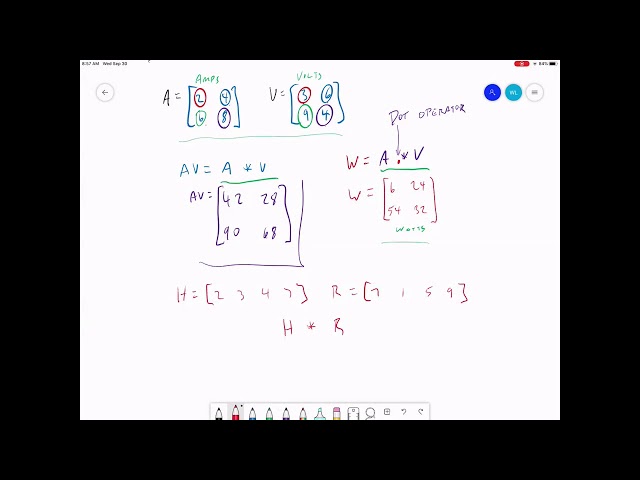 8:57 AM Wed Sep 30
84%
WL
AMPS
A = [2 4
6 8]
VOLTS
V = [3 6
9 4]
DOT OPERATOR
AV = A * V
AV = [42 28
90 68]
W = A .* V
W = [6 24
54 32]
WATTS
H = [2 3 4 7] R = [7 1 5 9]
H * R